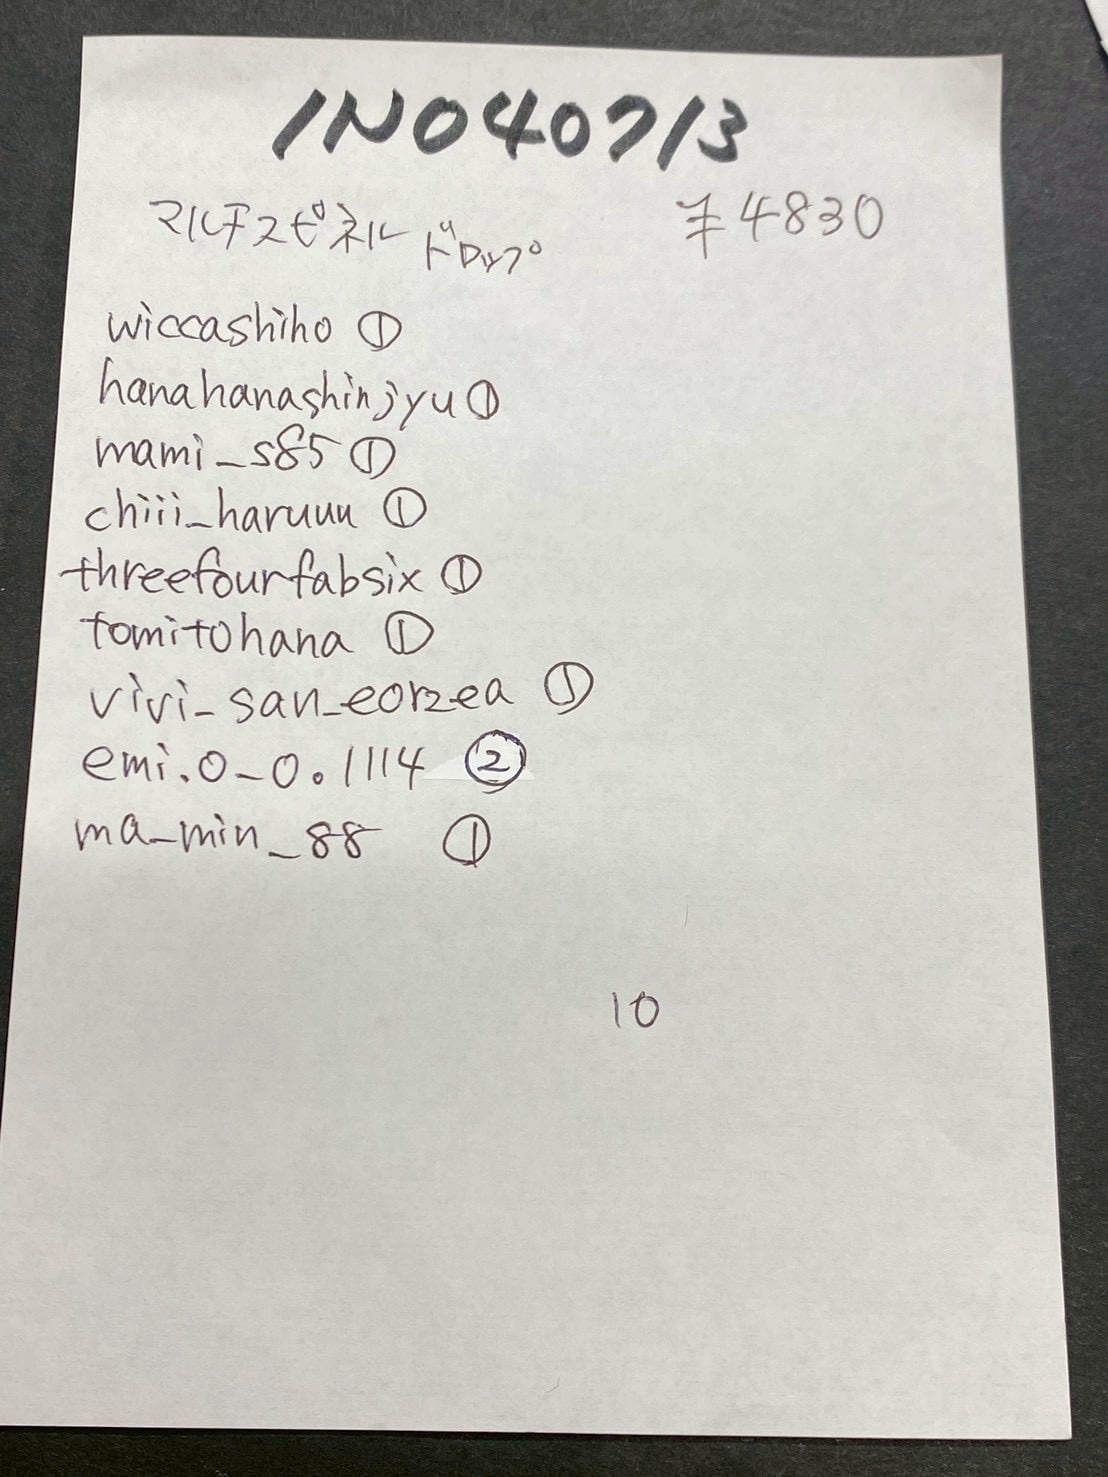 IN040713
マルチスピネルドロップ ¥4830
wiccashiho ①
hanahanashinjyu ①
mami_s85 ①
chiii_haruuu ①
threefourfabsix ①
tomitohana ①
vivi_san_eorzea ①
emi.0_0.1114 ②
ma_min_88 ①
10